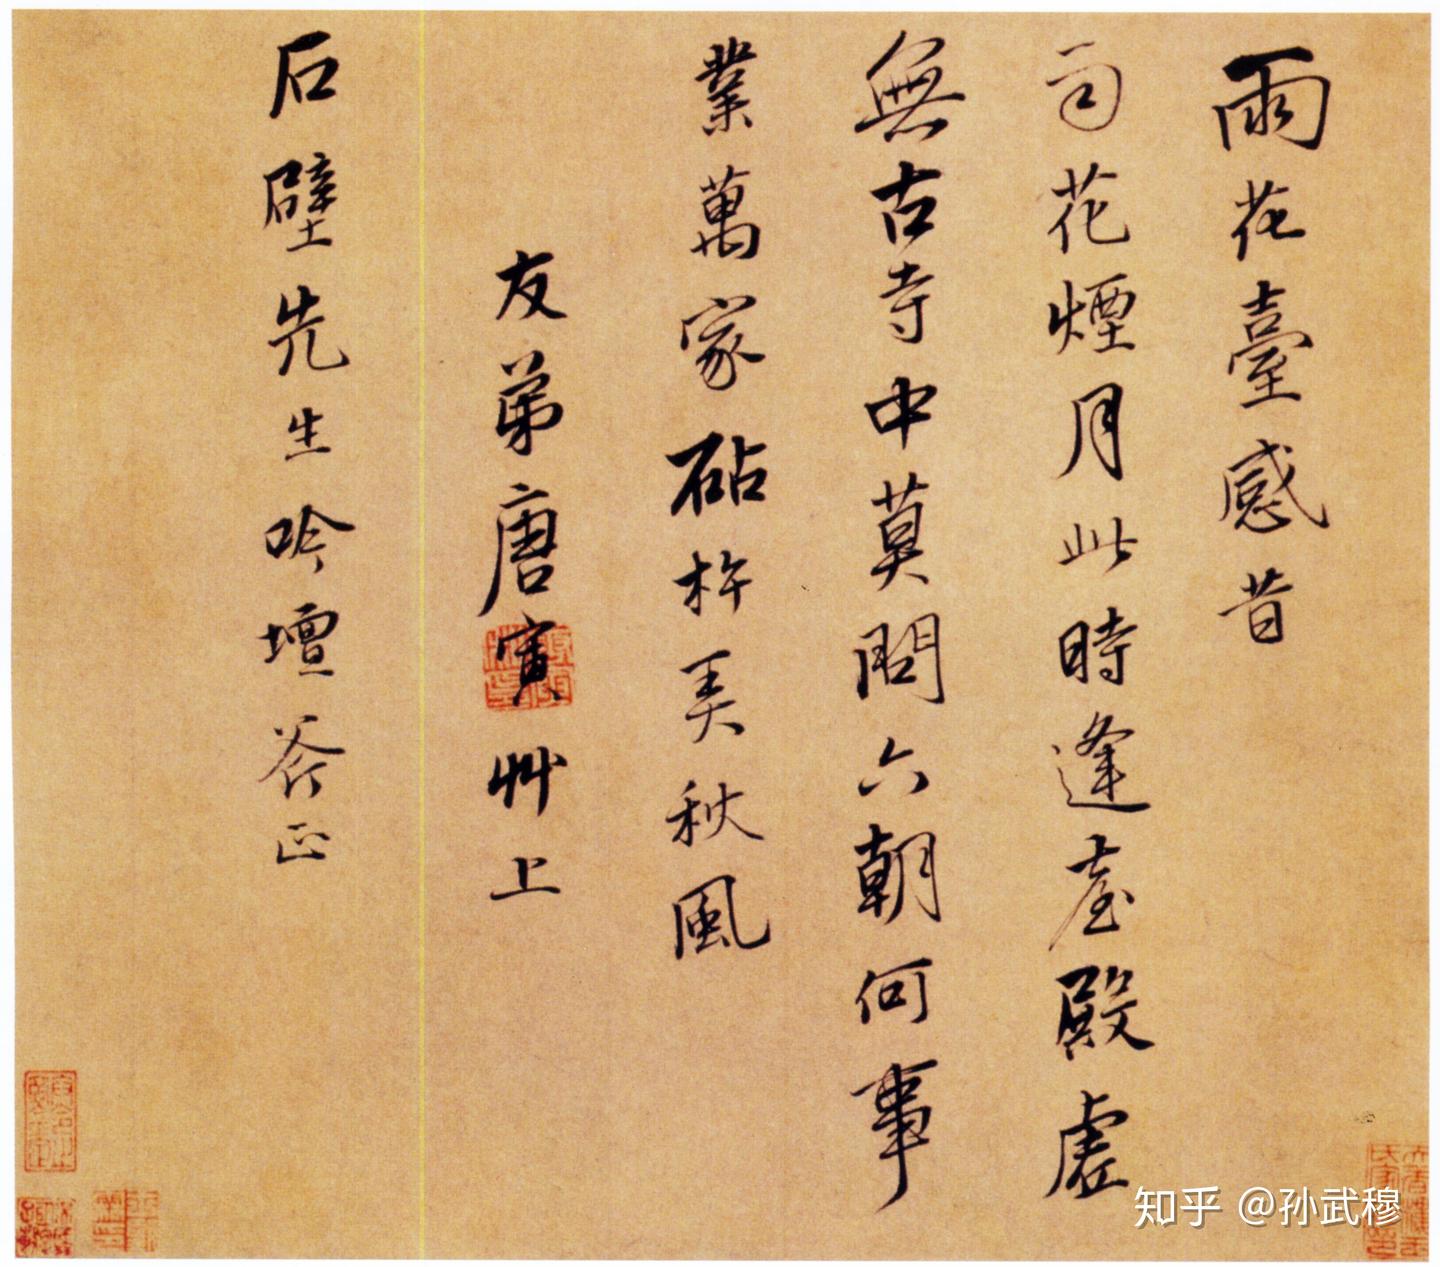 雨花臺感昔
百花煙月此時逢臺殿虛
無古寺中莫問六朝何事
業萬家砧杵弄秋風
友弟唐寅艸上
石壁先生吟壇斧正
知乎 @孙武穆